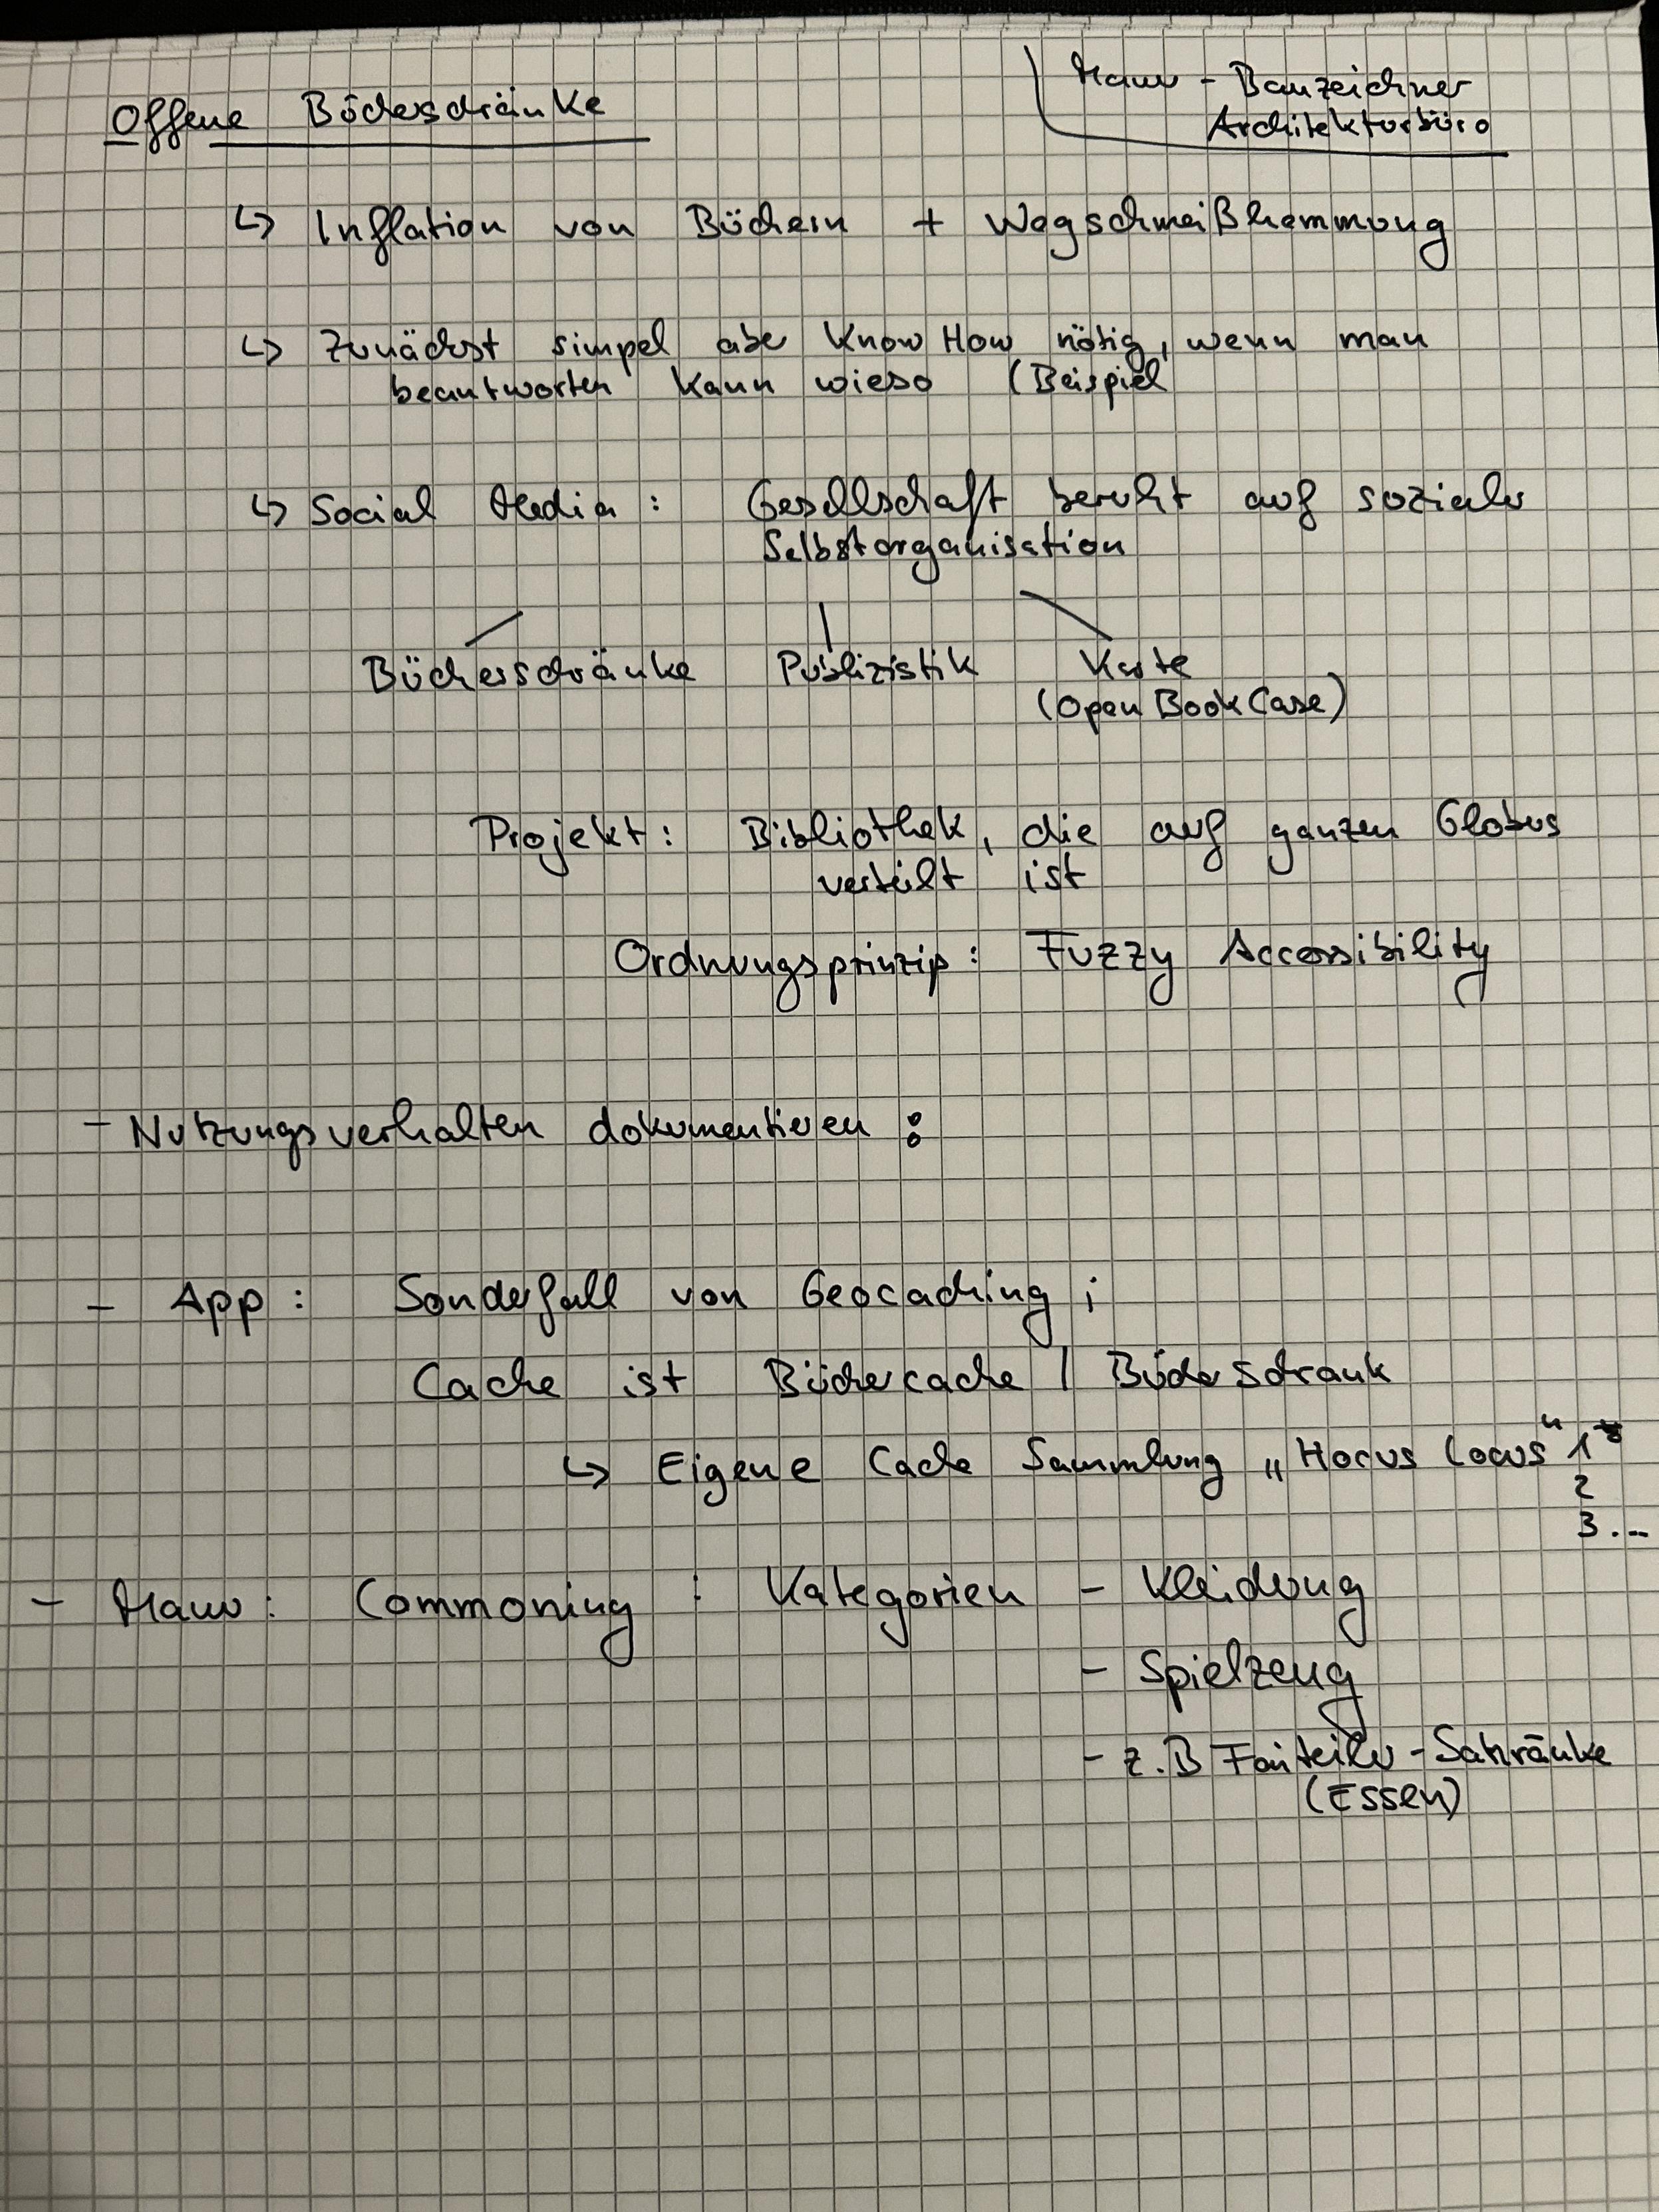 Offene Bücherschränke
Manu - Bauzeichner
Architekturbüro
↳ Inflation von Büchern + Wegschmeißhemmung
↳ Zunächst simpel aber Know How nötig, wenn man
beantworten kann wieso (Beispiel
↳ Social Media : Gesellschaft beruht auf sozialer
Selbstorganisation
Bücherschränke Publizistik Karte
(Open Book Case)
Projekt : Bibliothek, die auf ganzen Globus
verteilt ist
Ordnungsprinzip : Fuzzy Accessibility
- Nutzungsverhalten dokumentieren :
- App : Sonderfall von Geocaching ;
Cache ist Büchercache / Bücherschrank
↳ Eigene Cache Sammlung „Hocus Locus" 1
2
3 ...
- Manu : Commoning : Kategorien - Kleidung
- Spielzeug
- z.B Fairteiler - Schränke
(Essen)